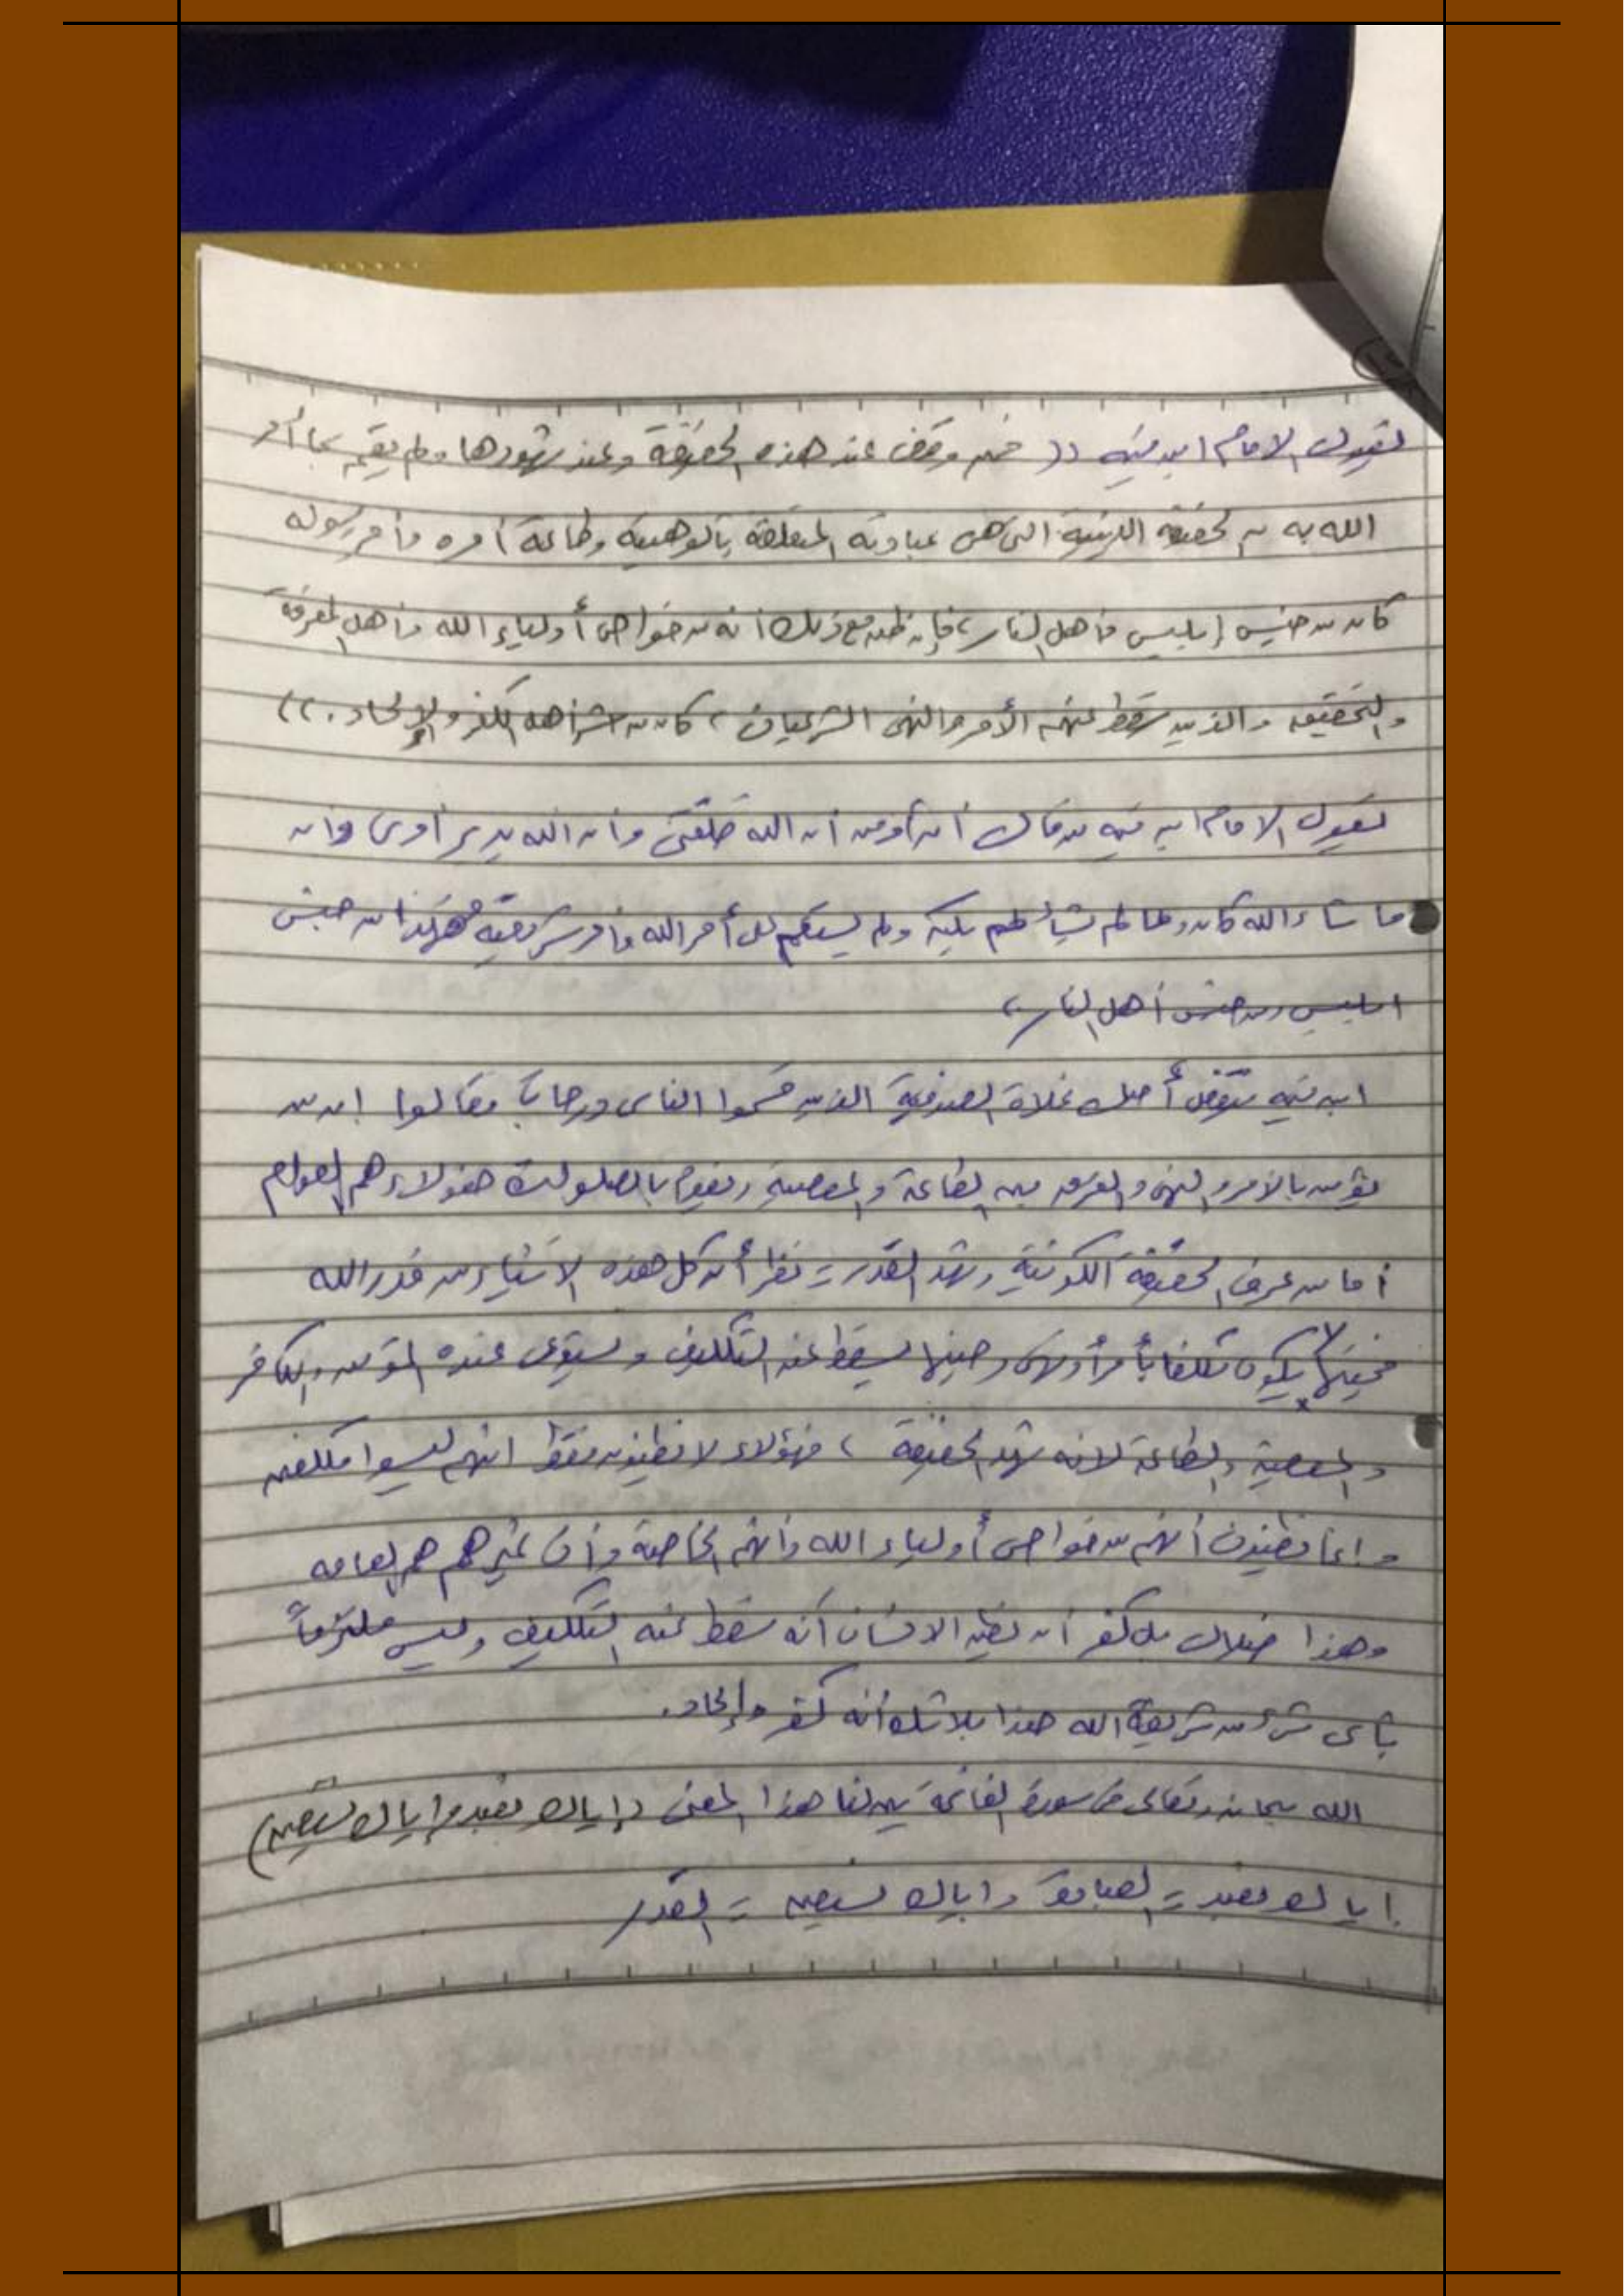 يقول الامام ابن تيميه (( فمن وقف عند هذه الحقيقة وعند شهودها ولم يقم بما أمر
الله به من الحقيقة الدينية التي هي عبادته المتعلقة بالوهيته وطاعة أمره وأمر رسوله
كان من جنس إبليس وأهل النار، فإن ظن مع ذلك أنه من خواص أولياء الله وأهل المعرفة
والتحقيق والذين سقط عنهم الأمر والنهي الشرعيان، كان من اشر أهل الكفر والإلحاد.))
يقول الامام ابن تيميه من قال أن أومن أن الله خلقني وأن الله يدبر أمري وان
ما شاء الله كان وما لم يشأ لم يكن ولم يستقم على أمر الله وأمر شريعته فهذا من جنس
ابليس ومن جنس أهل النار،
ابن تيميه ينقض أصل غلاة الصوفية الذين قسموا الناس درجات فقالوا إن من
يؤمن بالامر والنهي والفرق بين الطاعة والمعصية ويقوم بالصلوات هؤلاء هم العوام
أما من عرف الحقيقة الكونية وشهد القدر = نظر أن كل هذه الاشياء من قدر الله
فحينها لا يكون مكلفا بأمر أو نهي وحينها يسقط عنه التكليف ويستوي عنده المؤمن والكافر
والمعصية والطاعة لانه شهد الحقيقة، فهؤلاء لا يظنون فقط انهم ليسوا مكلفين
وإنما يظنون أنهم من خواص أولياء الله وأنهم الخاصة وأن غيرهم هم العامه
وهذا ضلال بل كفر أن يظن الانسان أنه سقط عنه التكليف وليس ملتزماً
بأي شيء من شريعة الله هذا بلا شك أنه كفر وإلحاد.
الله سبحانه وتعالى في سورة الفاتحة يبين لنا هذا المعنى (إياك نعبد وإياك نستعين)
إياك نعبد = العبادة وإياك نستعين = القدر